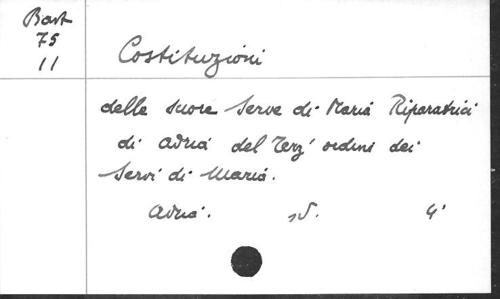 Bart
75
11
Costituzioni
delle suore Serve di Maria Riparatrici
di Adria del Terz' ordini dei
Servi di Maria.
Adria. 4°